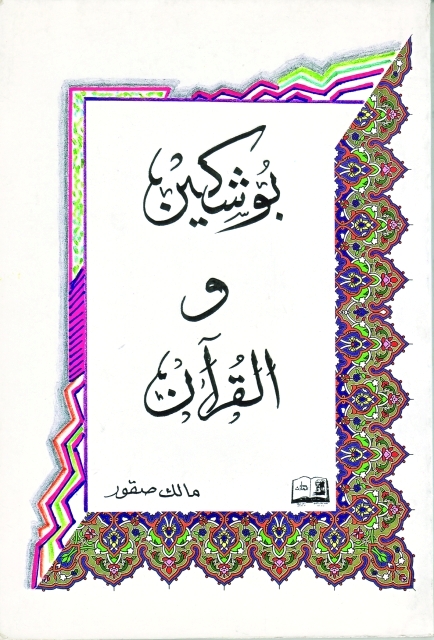 بُوشكين
و
القُرآن
مالك صقور